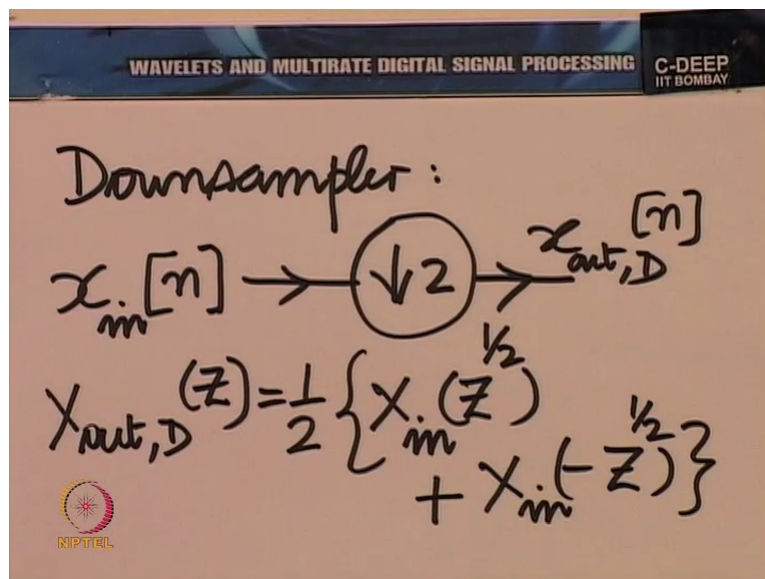 WAVELETS AND MULTIRATE DIGITAL SIGNAL PROCESSING
C-DEEP
IIT BOMBAY
Downsampler:
x_in[n] → ↓2 → x_out,D[n]
X_out,D(Z) = 1/2 { X_in(Z^1/2)
+ X_in(-Z^1/2) }
NPTEL